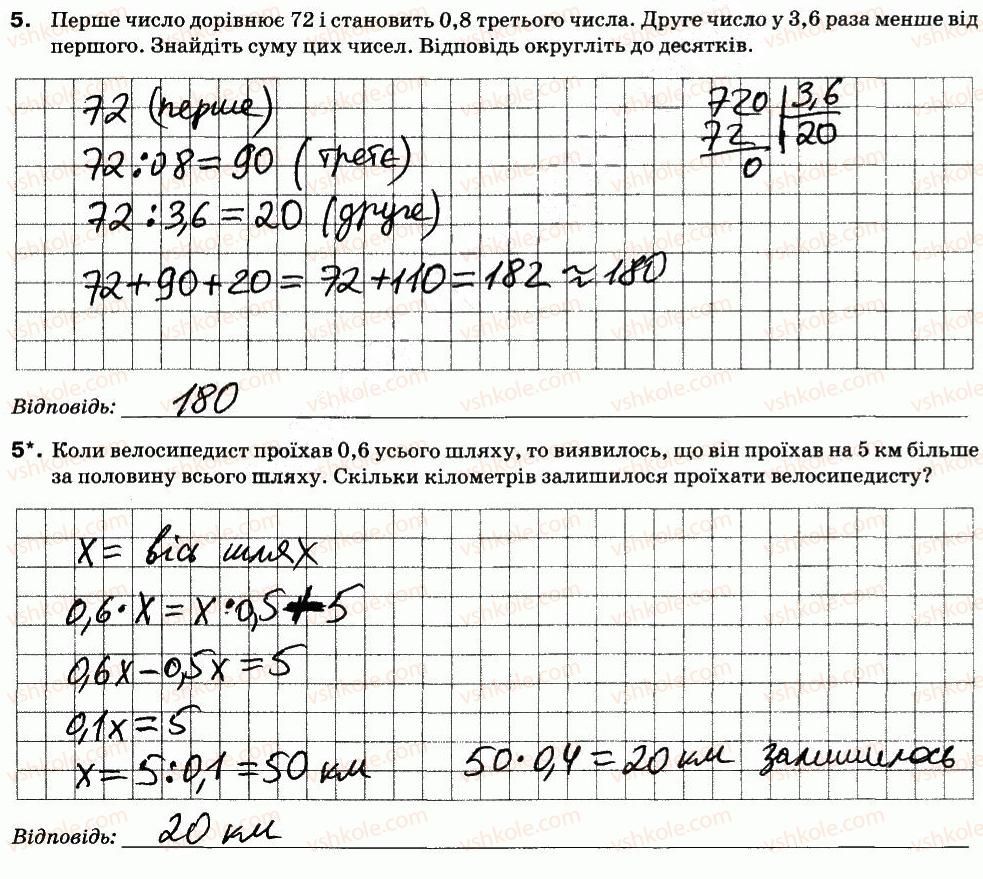 5. Перше число дорівнює 72 і становить 0,8 третього числа. Друге число у 3,6 раза менше від
першого. Знайдіть суму цих чисел. Відповідь округліть до десятків.
72 (перше)
720 | 3,6
72 | 20
0
72:08=90 (третє)
72:3,6=20 (друге)
72+90+20=72+110=182≈180
Відповідь: 180
5*. Коли велосипедист проїхав 0,6 усього шляху, то виявилось, що він проїхав на 5 км більше
за половину всього шляху. Скільки кілометрів залишилося проїхати велосипедисту?
x= вісь шлях
0,6·x=x·0,5+5
0,6x-0,5x=5
0,1x=5
x=5:0,1=50 км
50·0,4=20 км залишилось
Відповідь: 20 км